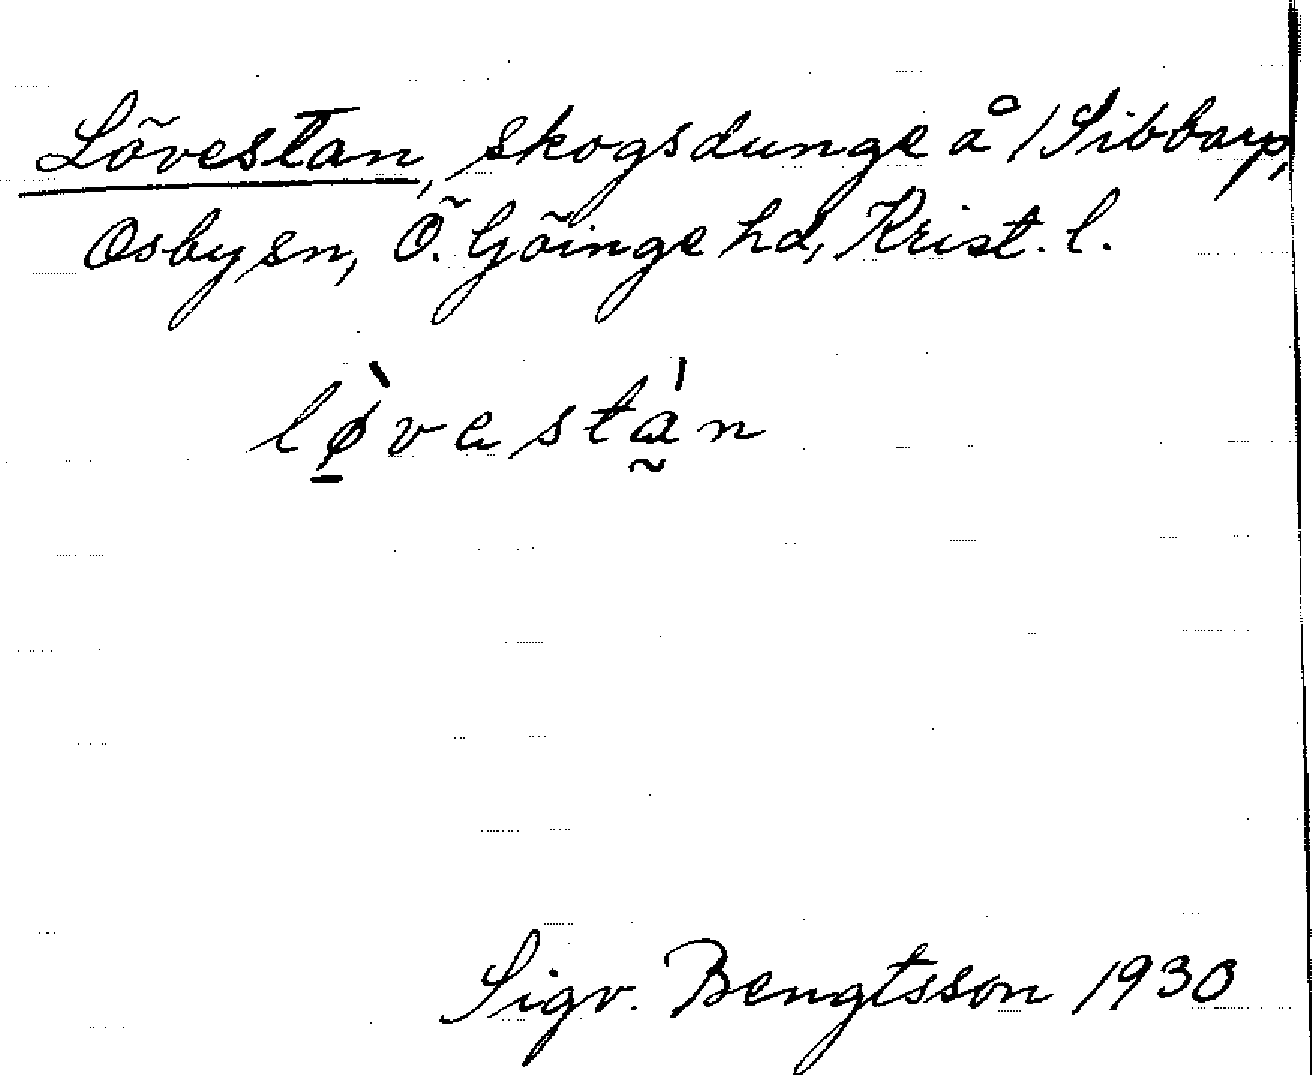 Lövestan, skogsdunge å /Sibbarp,
Osby sn, Ö. Göinge hd, Krist. l.
lø̠̀vestà̰n
Sigv. Bengtsson 1930